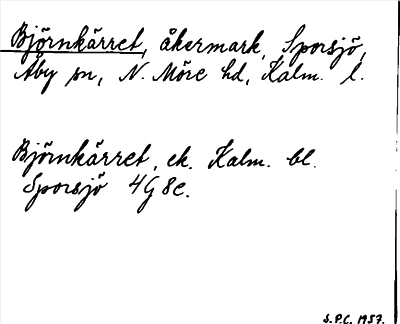 Björnkärret, åkermark, Sporsjö,
Åby sn, N. Möre hd, Kalm. l.
Björnkärret, ek. Kalm. bl.
Sporsjö 4G8c.
S.P.C. 1957.